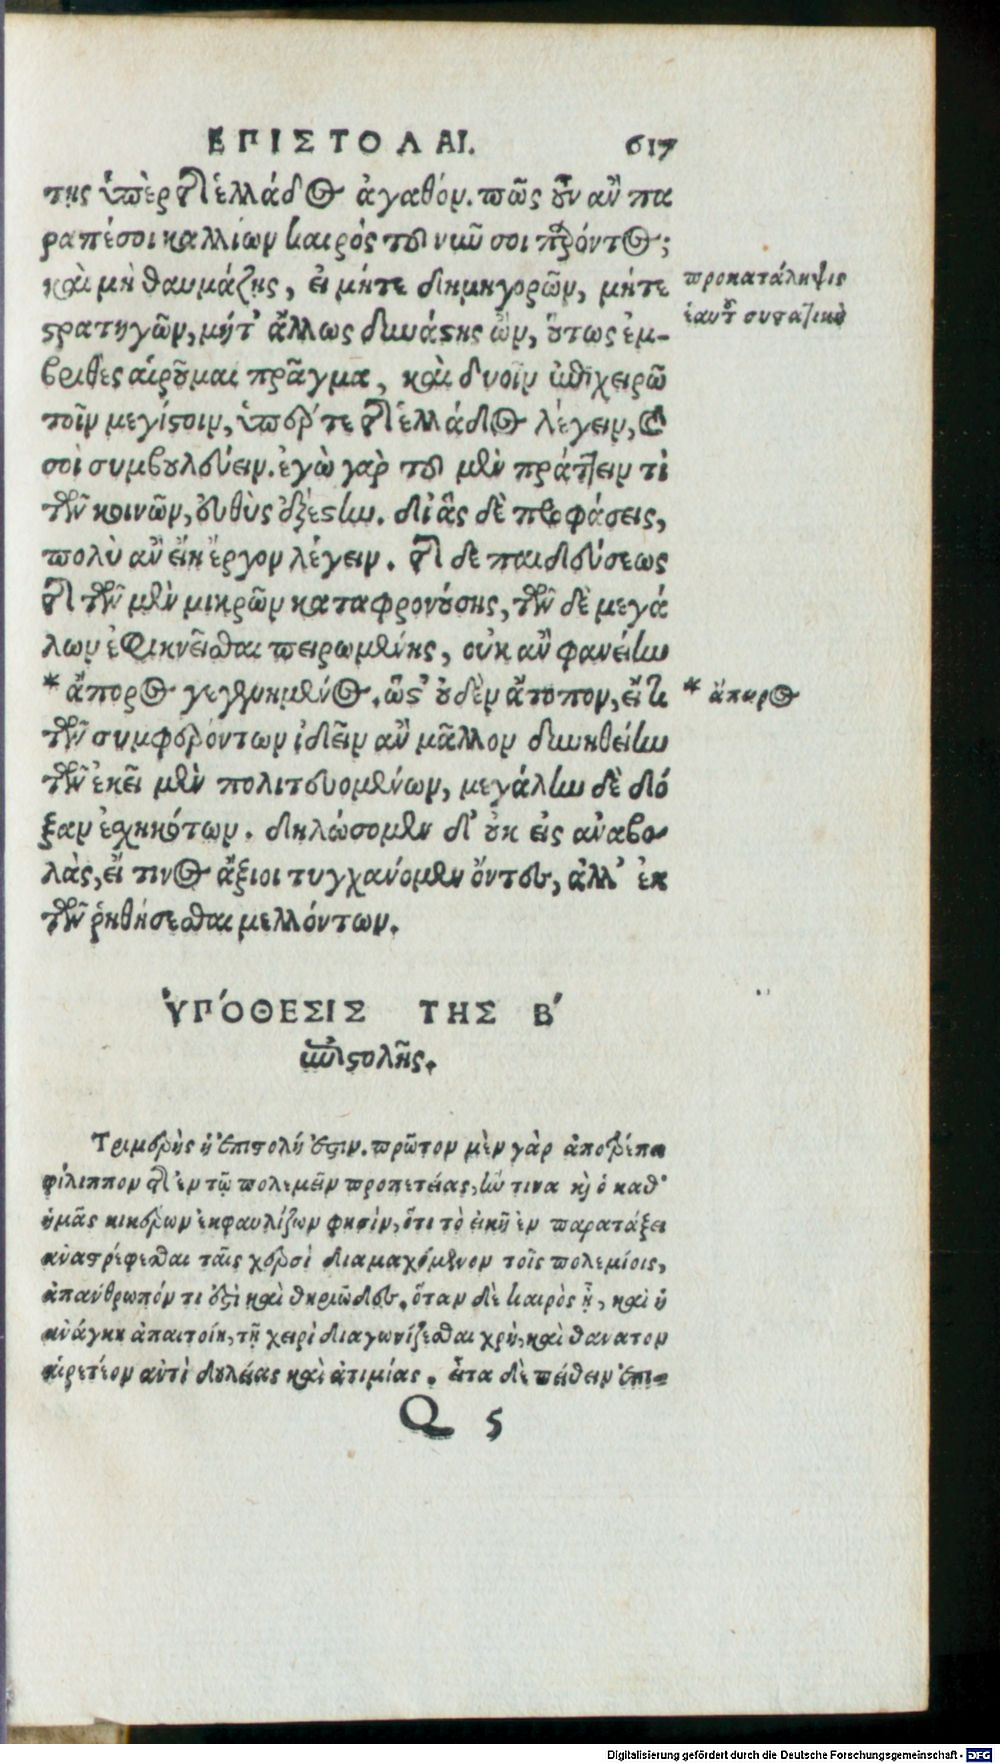 ΕΠΙΣΤΟΛΑΙ. 617
της ὑπὲρ τῆς ἑλλάδος ἀγαθόν. πῶς οὖν ἂν πα
ραπέσοι καλλίων καιρὸς τοῦ νῦν σοι παρόντος;
καὶ μὴ θαυμάζῃς, εἰ μήτε δημηγορῶν, μήτε
προκατάληψις
στρατηγῶν, μήτ' ἄλλως δυνάστης ὢν, οὕτως ἐμ-
ἑαυτοῦ συστατικὴ
βριθὲς αἱροῦμαι πρᾶγμα, καὶ δυοῖν ἐπιχειρῶ
τοῖν μεγίστοιν, ὑπέρ τε τῆς ἑλλάδος λέγειν, καὶ
σοὶ συμβουλεύειν. ἐγὼ γὰρ τοῦ μὲν πράττειν τὶ
τῶν κοινῶν, εὐθὺς ἐξέστην. δι' ἃς δὲ προφάσεις,
πολὺ ἂν εἴη ἔργον λέγειν. τῆς δὲ παιδεύσεως
τῆς τῶν μὲν μικρῶν καταφρονούσης, τῶν δὲ μεγά
λων ἐφικνεῖσθαι πειρωμένης, οὐκ ἂν φανείην
* ἄπορος γεγενημένος. ὥστ' οὐδὲν ἄτοπον, εἴ τι
* ἄμοιρος
τῶν συμφερόντων ἰδεῖν ἂν μᾶλλον δυνηθείην
τῶν εἰκῆ μὲν πολιτευομένων, μεγάλην δὲ δό
ξαν ἐσχηκότων. δηλώσομεν δ' οὐκ εἰς ἀναβο-
λὰς, εἴ τινος ἄξιοι τυγχάνομεν ὄντες, ἀλλ' ἐκ
τῶν ῥηθήσεσθαι μελλόντων.
ὙΠΌΘΕΣΙΣ ΤΗΣ Β´
ἐπιστολῆς.
Τριμερὴς ἡ ἐπιστολή ἐστιν. πρῶτον μὲν γὰρ ἀποτρέπει
φίλιππον τῆς ἐν τῷ πολεμεῖν προπετείας, ἥν τινα καὶ ὁ καθ'
ἡμᾶς κικέρων ἐκφαυλίζων φησὶν, ὅτι τὸ εἰκῇ ἐν παρατάξει
ἀναστρέφεσθαι ταῖς χερσὶ διαμαχόμενον τοῖς πολεμίοις,
ἀπάνθρωπόν τι ἐστὶ καὶ θηριῶδες. ὅταν δὲ καιρὸς ᾖ, καὶ ἡ
ἀνάγκη ἀπαιτοίη, τῇ χειρὶ διαγωνίζεσθαι χρὴ, καὶ θάνατον
αἱρετέον ἀντὶ δουλείας καὶ ἀτιμίας. εἶτα δὲ πείθειν ἐπι-
Q 5
Digitalisierung gefördert durch die Deutsche Forschungsgemeinschaft - DFG